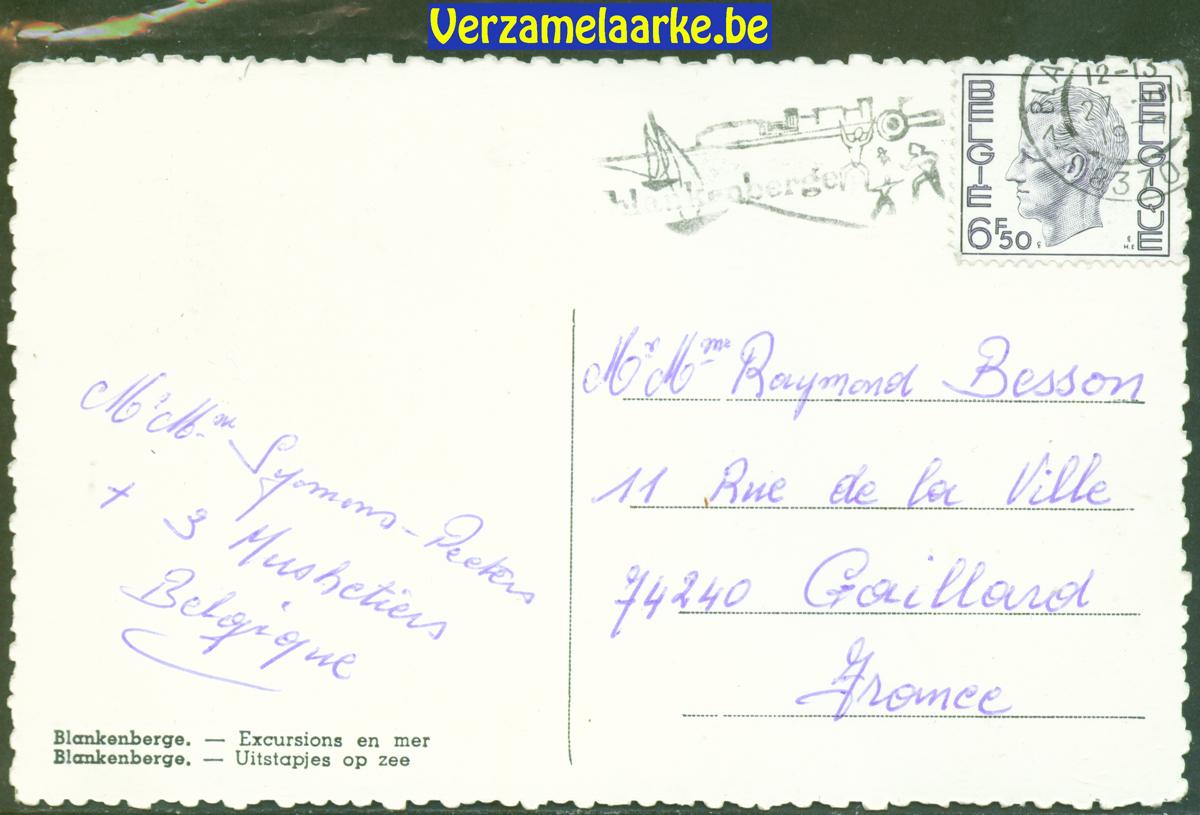 Verzamelaarke.be
BELGIË
BELGIQUE
6F50
12-13
27
8370
Blankenberge
Mr Mme Raymond Besson
11 Rue de la Ville
74240 Gaillard
France
Mr Mme Symons-Peeters
+ 3 Mushetiers
Belgique
Blankenberge. — Excursions en mer
Blankenberge. — Uitstapjes op zee